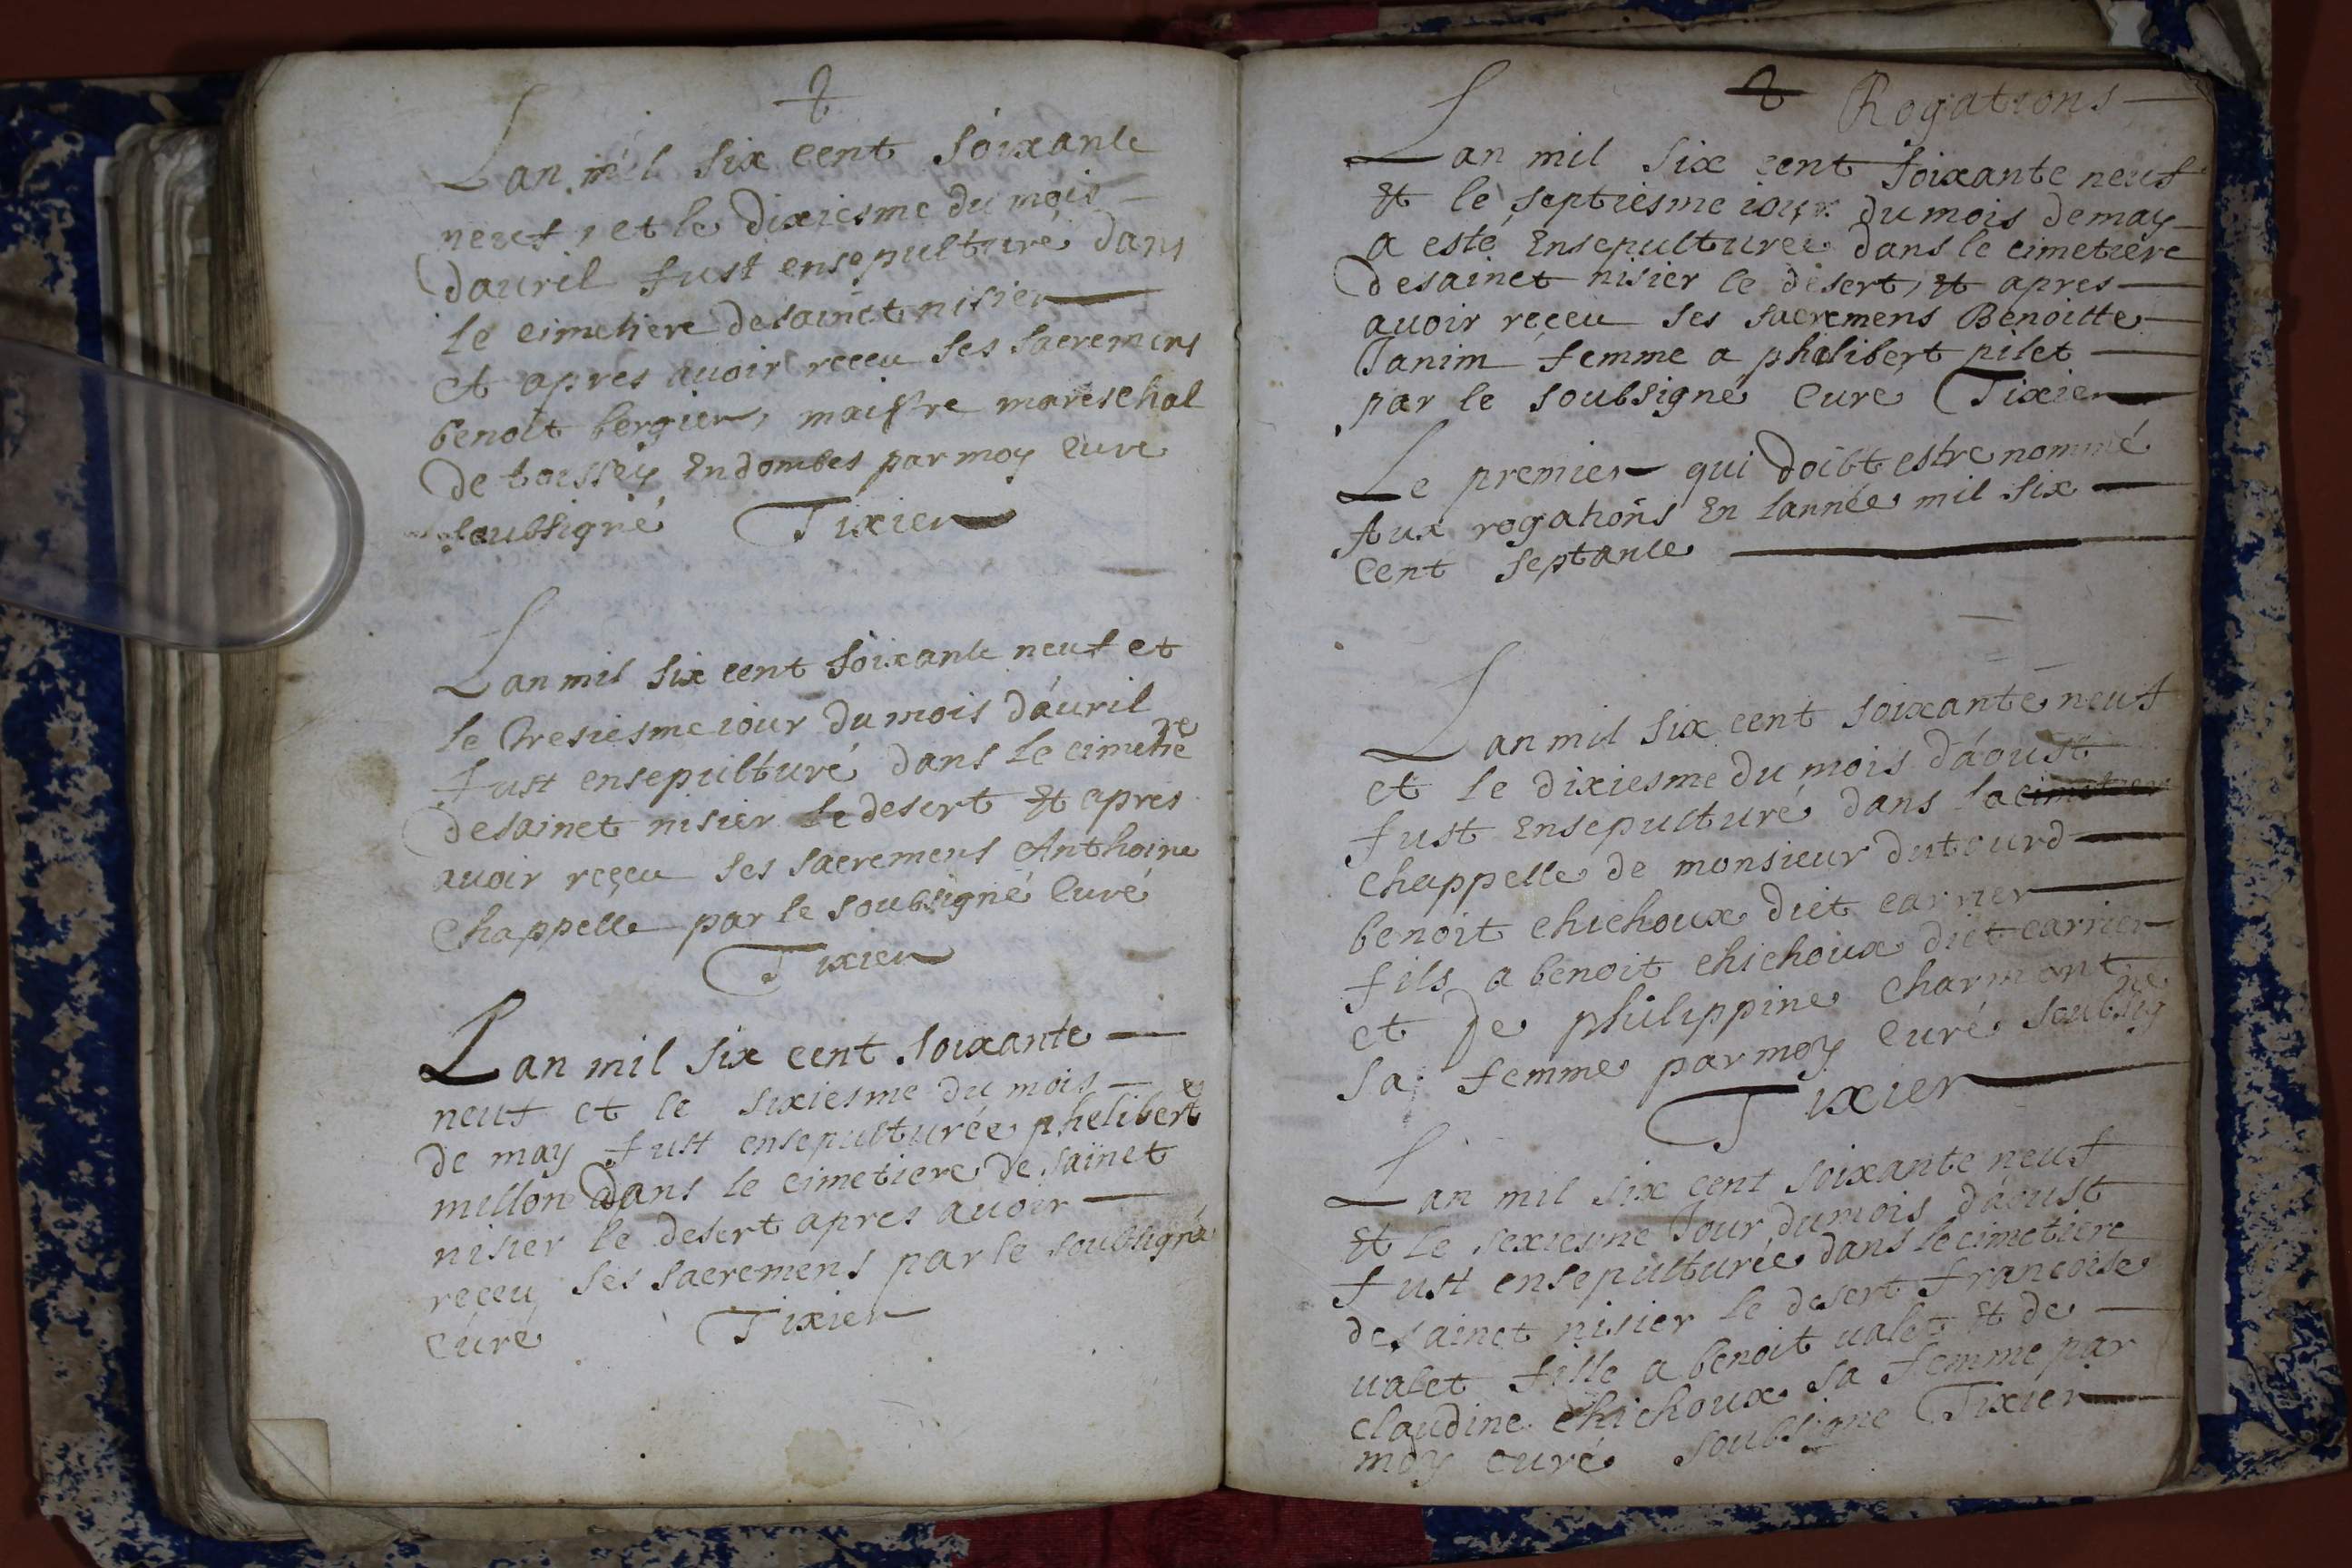 Lan mil six cent soixante
neuf, et le dixiesme du mois
dauril fust ensepulturé dans
le cimetiere de sainct nisier
et apres auoir receu ses sacremens
benoit bergier, maistre mareschal
de toissey En dombes par moy Curé
soubsigné Tixier
Lan mil six cent soixante neuf et
le tresiesme iour du mois dáuril
fust ensepulturé dans le cimetiere
de sainct nisier le desert Et apres
auoir reçeu ses sacremens Anthoine
Chappelle par le soubsigné Curé
Tixier
Lan mil six cent soixante
neuf et le sixiesme du mois
de may fust ensepulturée pheliberte
millon dans le cimetiere de sainct
nisier le desert apres auoir
reçeu ses sacremens par le soubsigné
Curé Tixier
Rogations
Lan mil six cent soixante neuf
Et le septiesme iour du mois de may
a esté Ensepulturée dans le cimetiere
de sainct nisier le desert, Et apres
auoir reçeu ses sacremens Benoitte
Janim femme a phelibert pilet
par le soubsigné Curé Tixier
Le premier qui doibt estre nommé
Aux rogations En lannée mil six
Cent septante
Lan mil six cent soixante neuf
et le dixiesme du mois dáoust
fust Ensepulturé dans la cimetier
chappelle de monsieur dutourd
benoit chichoux dict carrier
fils a benoit chichoux dict carrier
et de philippine Charmont
sa femme par moy Curé soubsigné
Tixier
Lan mil six cent soixante neuf
Et le sexiesme Jour du mois dáoust
fust ensepulturée dans le cimetiere
de sainct nisier le desert françoise
ualet fille a benoit ualet Et de
claudine chichoux sa femme par
moy curé soubsigné Tixier